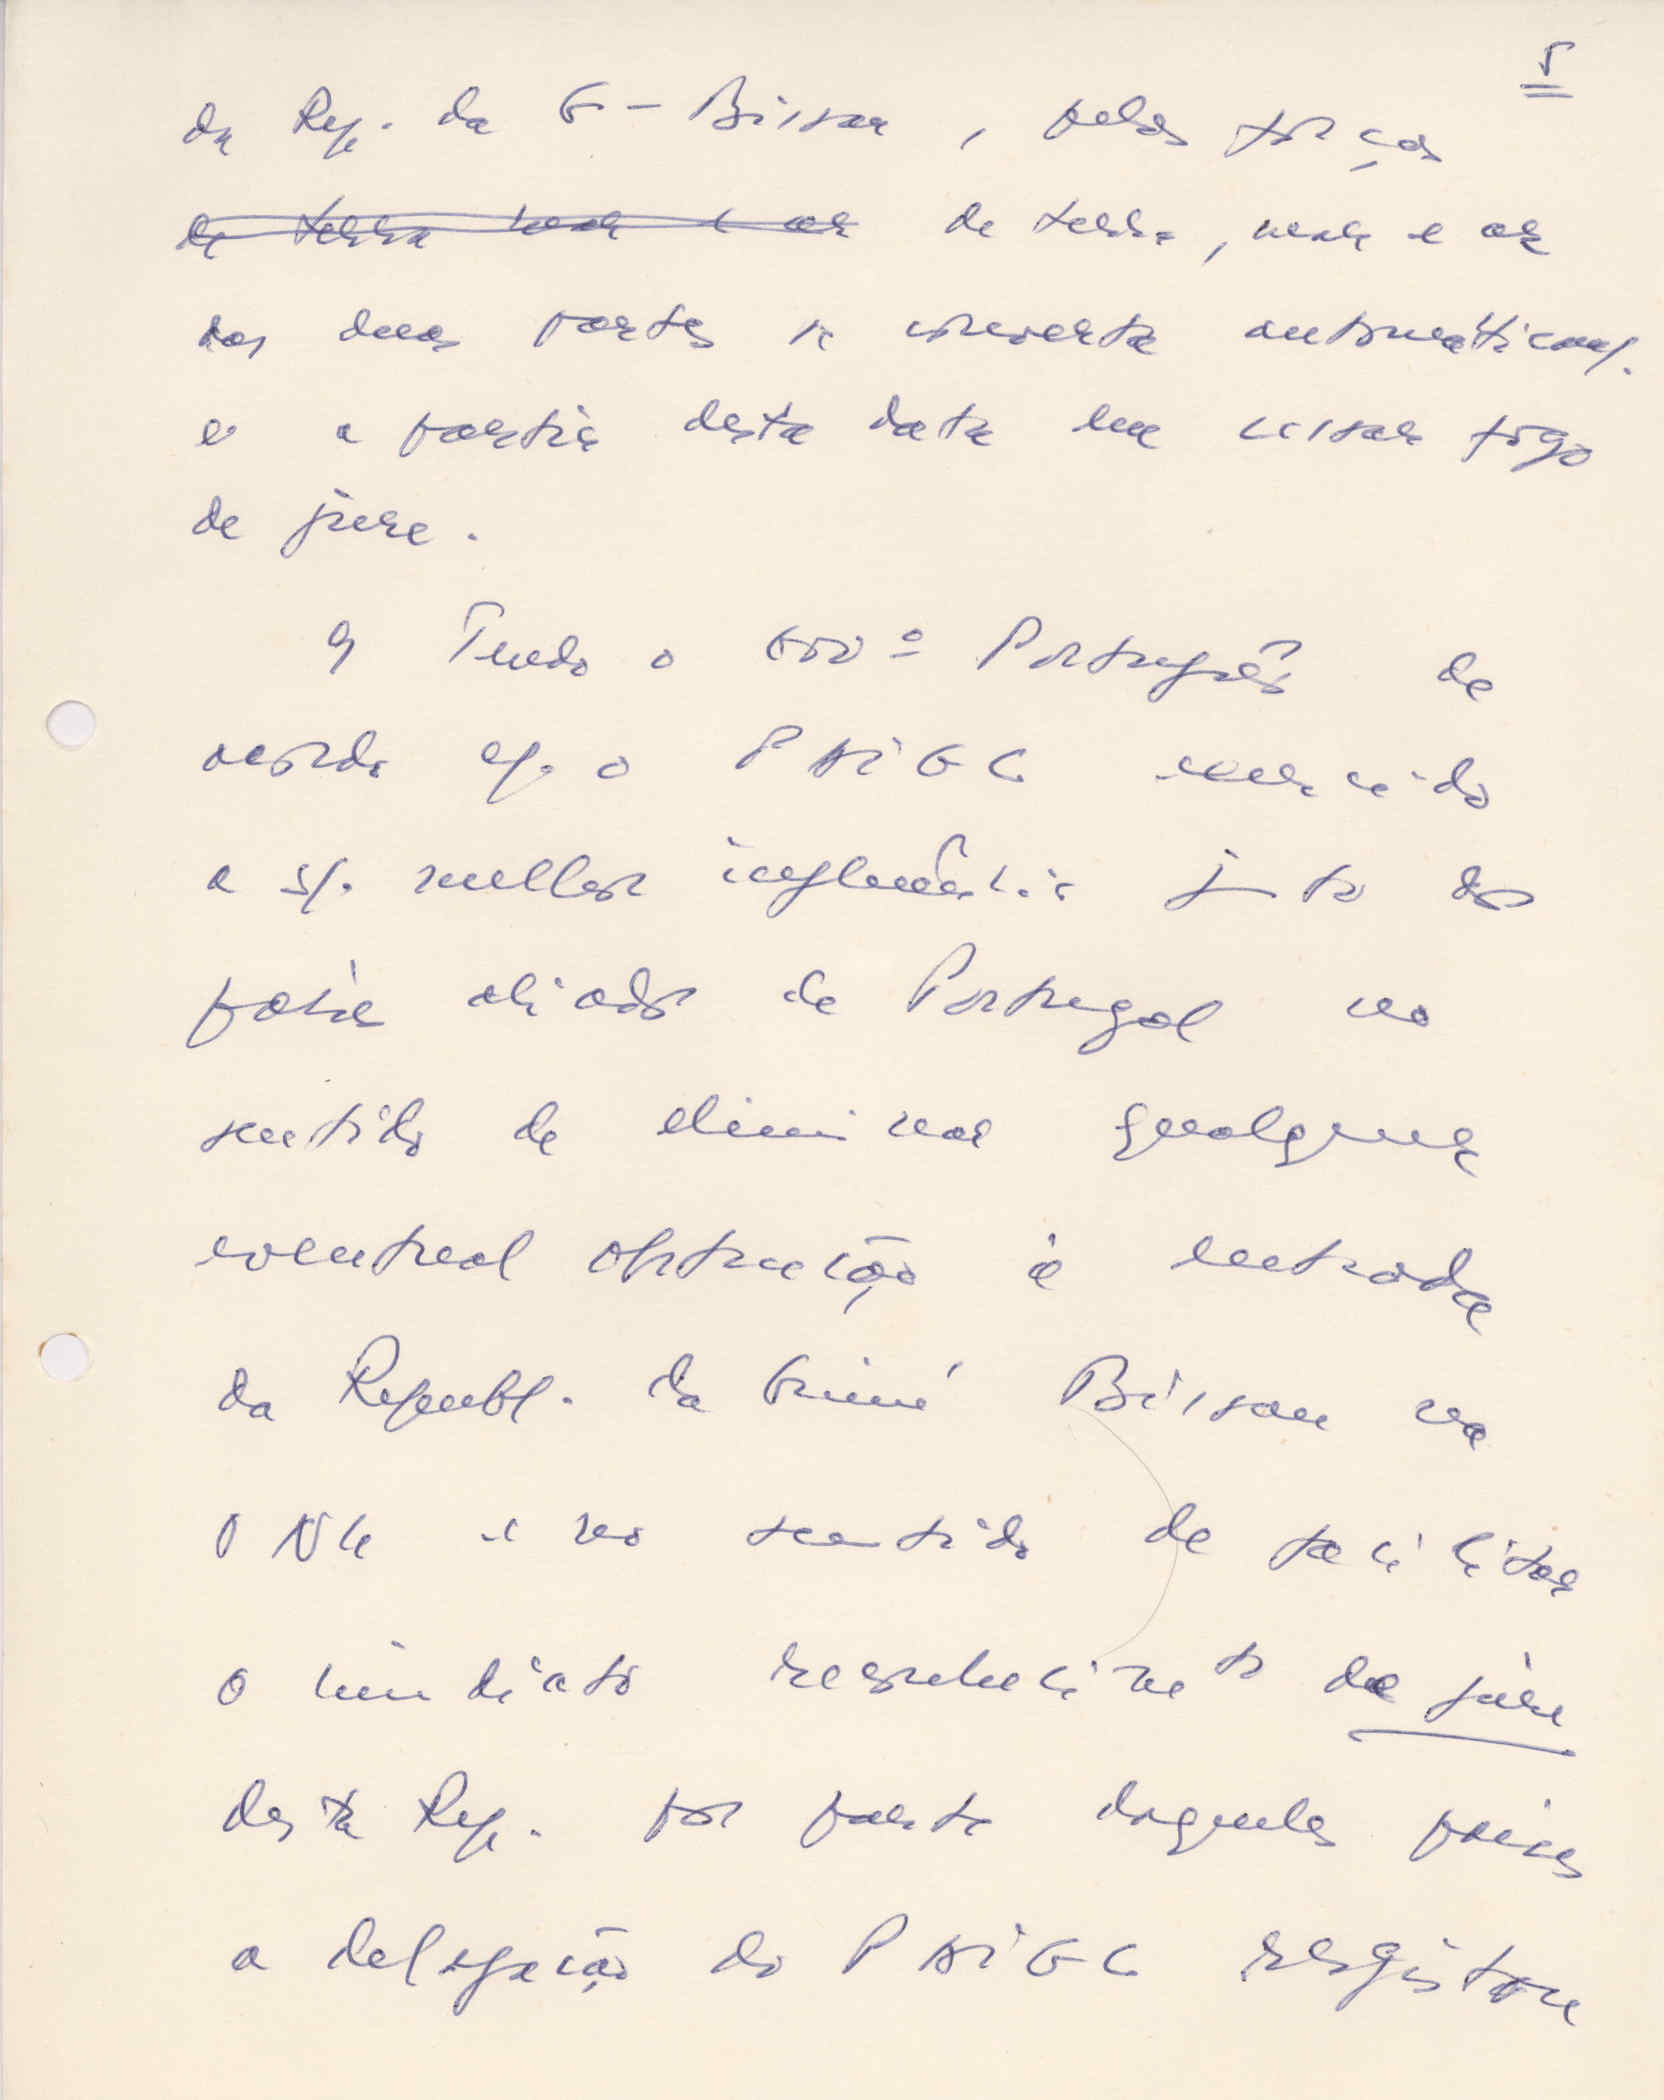 5
da Rep. da G-Bissau, pelas forças
de terra mar e ar de terra, mar e ar
das duas partes se converta automaticam/.
e a partir desta data em cessar fogo
de jure.
9 Tendo o Gov.º Português de
acordo c/. o PAIGC exercido
a s/. melhor influência junto dos
países aliados de Portugal no
sentido de eliminar qualquer
eventual obstrução à entrada
da Republ. da Guiné Bissau na
ONU e no sentido de facilitar
o imediato reconhecimento de jure
desta Rep. por parte daqueles países
a delegação do PAIGC registou